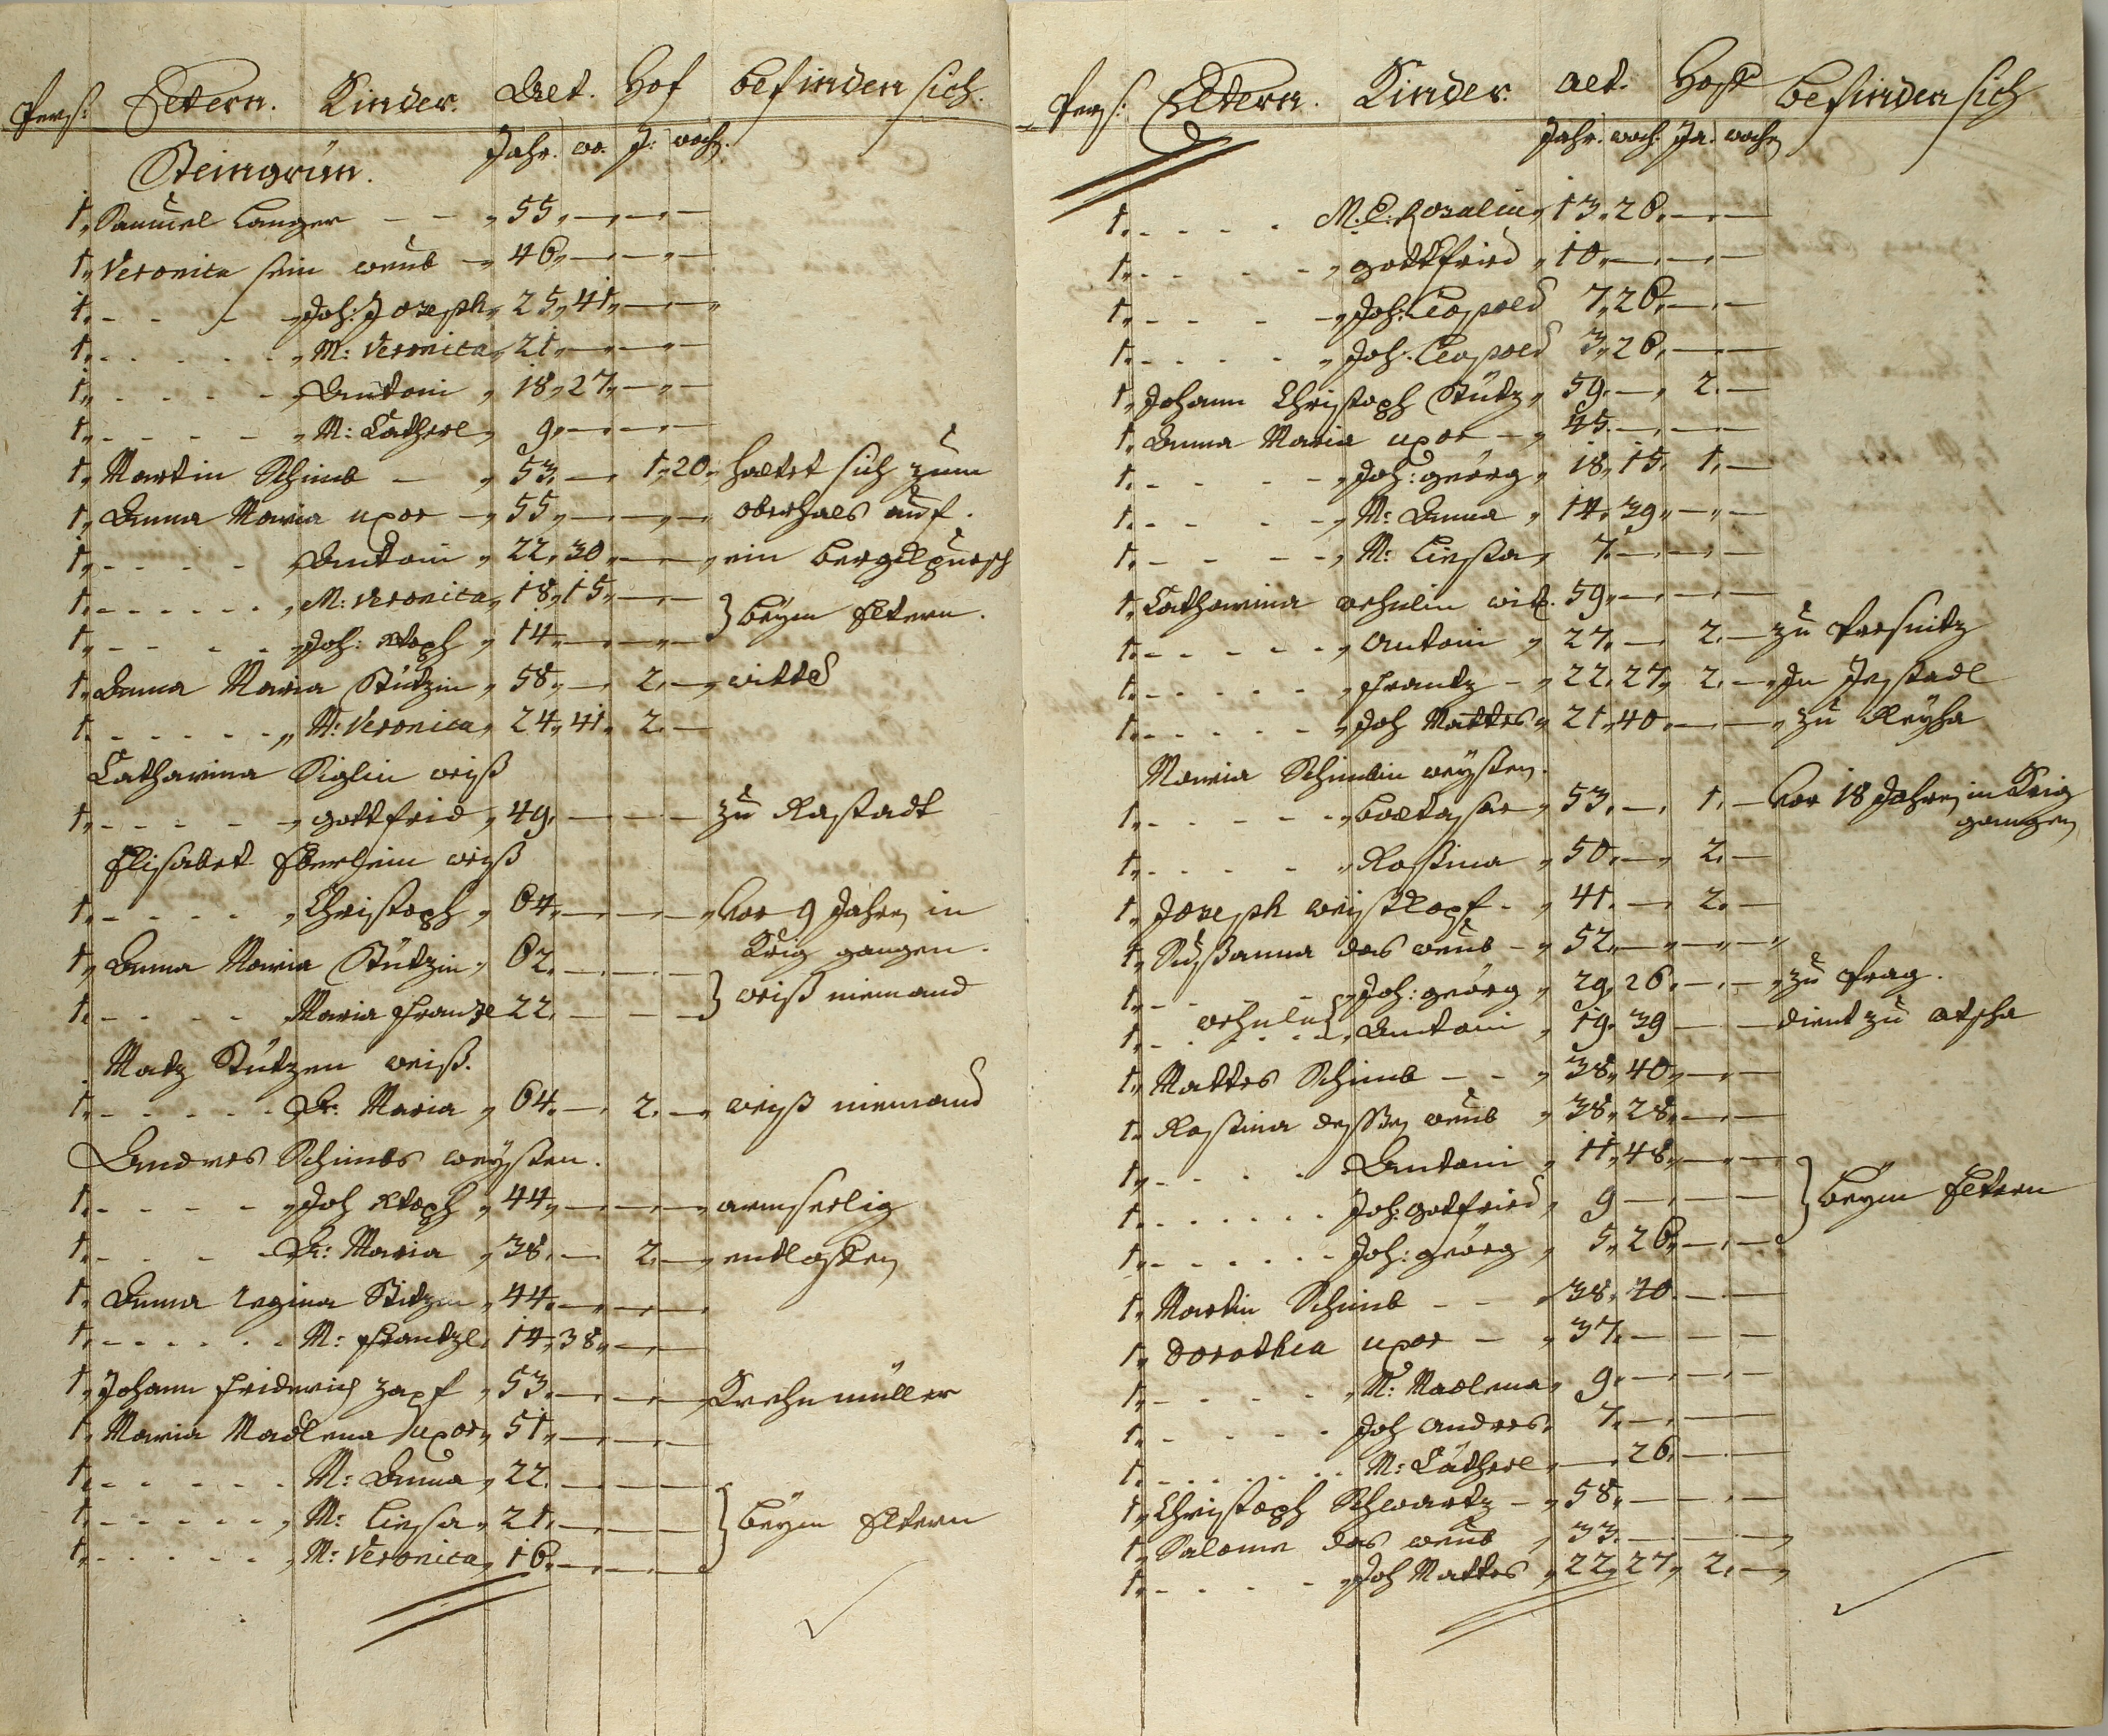 Pers: Eltern. Kinder. Aet. Hof befinden sich.
Jahr. wo. J: woch.
Steingrün.
1„ Samuel Langer – – „ 55„ — „ —
1„ Veronica sein weub – „ 46„ — „ —
1„ - - - - „ Joh: Joseph „ 25„ 41„ — „ —
1„ - - - - „ M: Veronica „ 21„ — „ —
1„ - - - - „ Antoni „ 18„ 27„ — „ —
1„ - - - - „ M: Catherl „ 9„ — „ —
1„ Martin Schimb – „ 53. — „ 1„ 20„ haltet sich zum
1„ Anna Maria uxor – „ 55„ — „ — „ oberhals auf.
1„ - - - - „ Antoni „ 22„ 30„ — „ — „ ein bergkpursch
1„ - - - - „ M: Veronica „ 18„ 15„ — „ —
1„ - - - - „ Joh: Xtoph „ 14„ — „ — } beym Eltern.
1„ Anna Maria Stützin „ 58„ — „ 2. — „ wittib
1. - - - - „ M: Veronica „ 24„ 41. 2. —
Catharina Siglin weiß
1„ - - - - „ gottfrid „ 49. — — — zu Rastadt
Elisabet Eberlein weiß
1„ - - - - „ Christoph „ 64„ — „ — „ vor 9 Jahren in
Krig gangen.
1„ Anna Maria Stützin „ 62. — . —
1„ - - - - Maria Franzl 22. — — — } weiß niemand
Matz Stützen weiß.
1„ - - - - A: Maria „ 64. — . 2. — „ weyß niemand
Andres Schimbs weysten.
1„ - - - - „ Joh Xtoph „ 44„ — „ — „ armseelig
1„ - - - - A: Maria „ 38. — 2. — „ entlossen
1„ Anna Regina Stützin „ 44. — „ — „ —
1„ - - - - M: Frantzl. 14„ 38„ — „ —
1„ Johann Friderich Zapf „ 53. — „ — „ Krehnmüller
1„ Maria Madlena uxor „ 51„ — „ — „ —
1„ - - - - M: Anna „ 22. — — —
1„ - - - - „ M: Liesa „ 21. — — — } beym Eltern
1„ - - - - „ M: Veronica „ 16„ — — —
Pers: Eltern. Kinder. aet. Hoff befinden sich
Jahr. woch. Ja. wochen
1„ - - - - M. E: Rosalia „ 13„ 26„ — . —
1„ - - - - „ gottfried „ 10„ — . — . —
1„ - - - - „ Joh: Leopold 7„ 26„ — . —
1„ - - - - „ Joh: Leopold 3„ 26„ — . —
1„ Johann Christoph Stütz „ 59. — „ 2. —
1„ Anna Maria uxor – „ 45. — „ — . —
1„ - - - - „ Joh: georg „ 18„ 15. 1. —
1„ - - - - „ M: Anna „ 14. 39„ — „ —
1„ - - - - „ M: Liessa „ 7. — . — . —
1„ Catharina wit. 59. — . — . —
1„ - - - - „ Antoni „ 27. — „ 2. — zu Presnitz
1„ - - - - „ Frantz – „ 22. 27„ 2. — „ In Jestadl
1„ - - - - „ Joh Mattes „ 21„ 40. — . — „ zu Reysha
Maria Schimbin weysten.
1„ - - - - „ Baltasar „ 53. — . 1. — Vor 18 Jahren in Krig
gangen
1„ - - - - „ Rosina „ 50. — „ 2. —
1„ Joseph weyßkopf – „ 41. — „ 2. —
1„ Sußanna das weub – „ 52. — „ — „ —
1„ - - - - „ Joh: georg „ 29„ 26. — . — „ zu Prag.
1„ - - - - „ Antoni „ 19. 39 — — dient zu
1„ Mattes Schimb – – „ 38„ 40„ — „ —
1„ Rosina dessen weub „ 38„ 28„ — . —
1„ - - - - Antoni „ 11„ 48„ — . —
1„ - - - - Joh: gotfried „ 9 — . — — } beym Eltern
1„ - - - - Joh: georg „ 5„ 26„ — . —
1„ Martin Schimb – – „ 38„ 40. — . —
1„ Dorothea uxor – „ 37. — — —
1„ - - - - „ M: Madlena „ 9. — . — . —
1„ - - - - Joh Andres. 7. — . — —
1„ - - - - M: Catherl „ — „ 26. — . —
1„ Christoph Schwartz – „ 58„ — — . —
1„ Salome das weub „ 33. — . — . — „
1„ - - - - „ Joh Mattes „ 22„ 27„ 2. — „